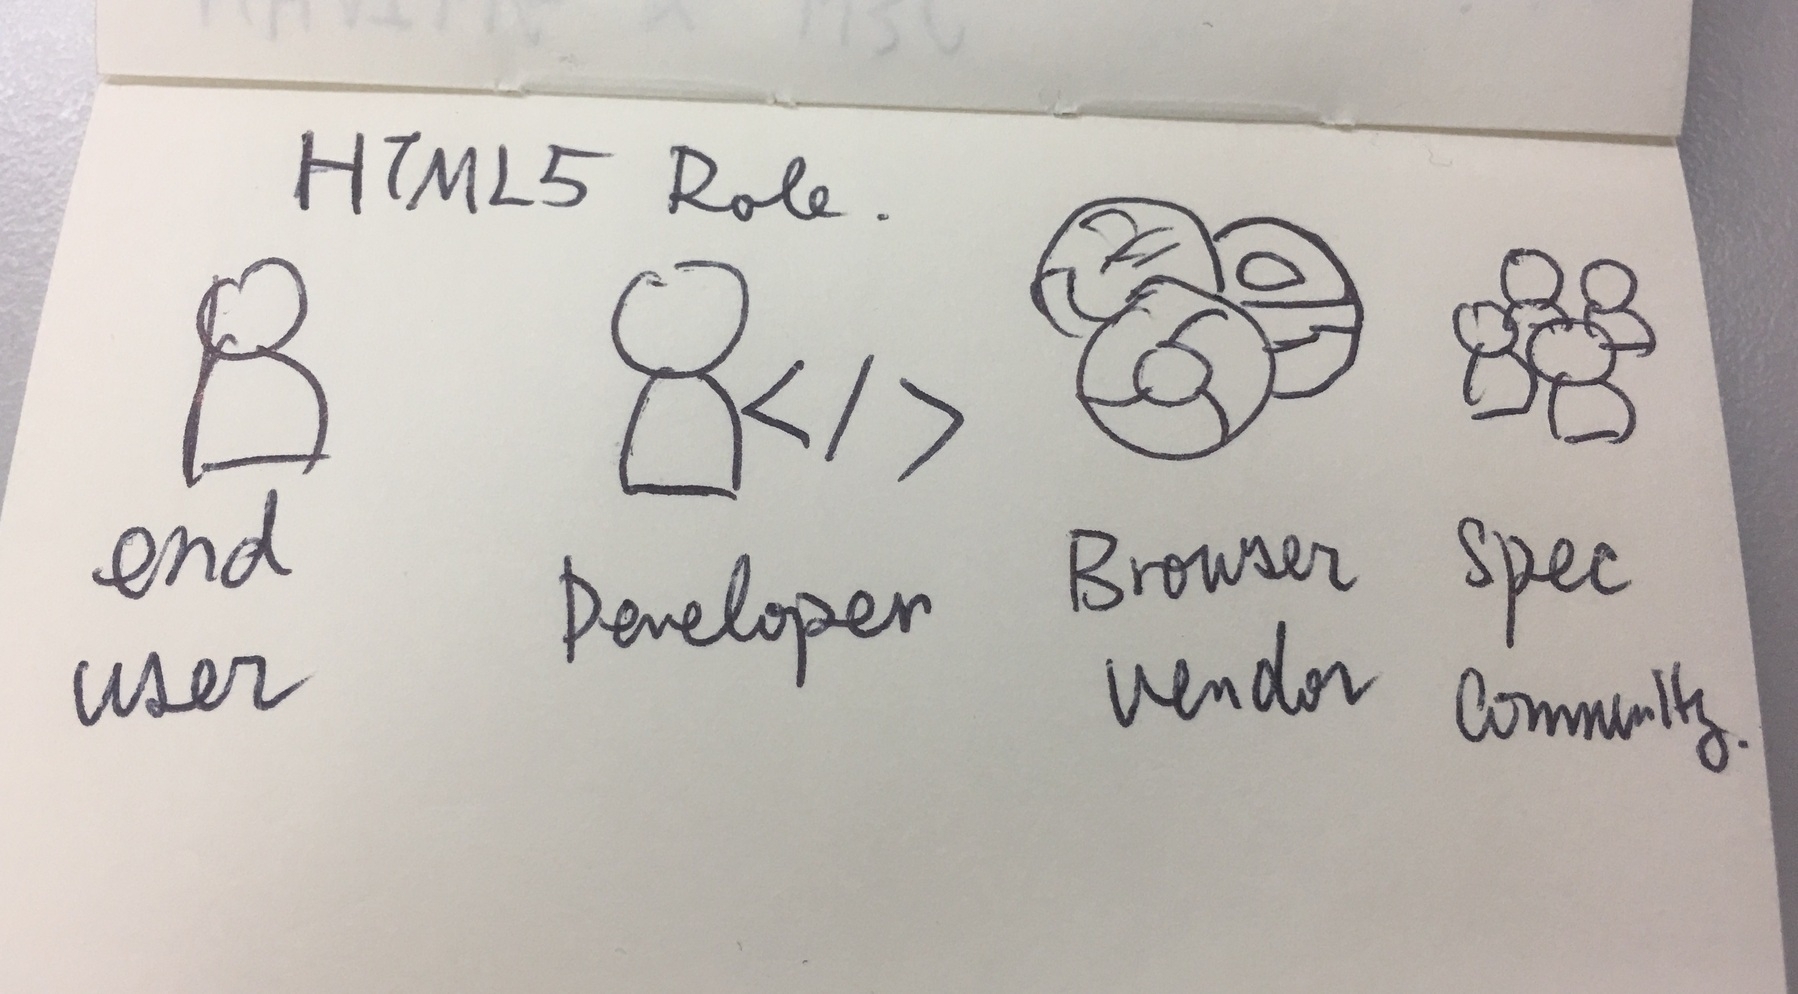 HTML5 Role.
</>
end
user
Developer
Browser
vendor
Spec
Community.